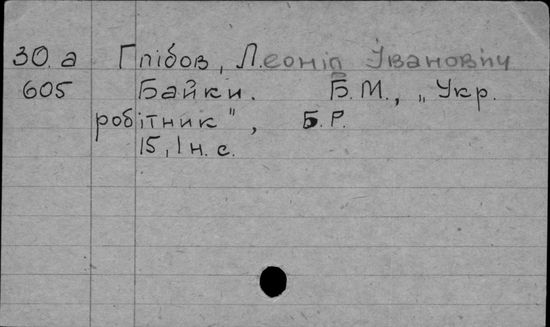 30.а Глібов, Леонід Іванович
605 Байки. Б.М., „Укр.
робітник", Б.Р.
15, 1 н. с.